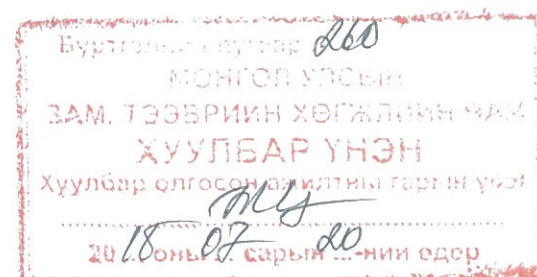 Бүртгэлийн дугаар 260
МОНГОЛ УЛСЫН
ЗАМ, ТЭЭВРИЙН ХӨГЖЛИЙН ЯАМ
ХУУЛБАР ҮНЭН
Хуулбар олгосон ажилтны гарын үсэг
20 18 оны 07 сарын 20 -ний өдөр